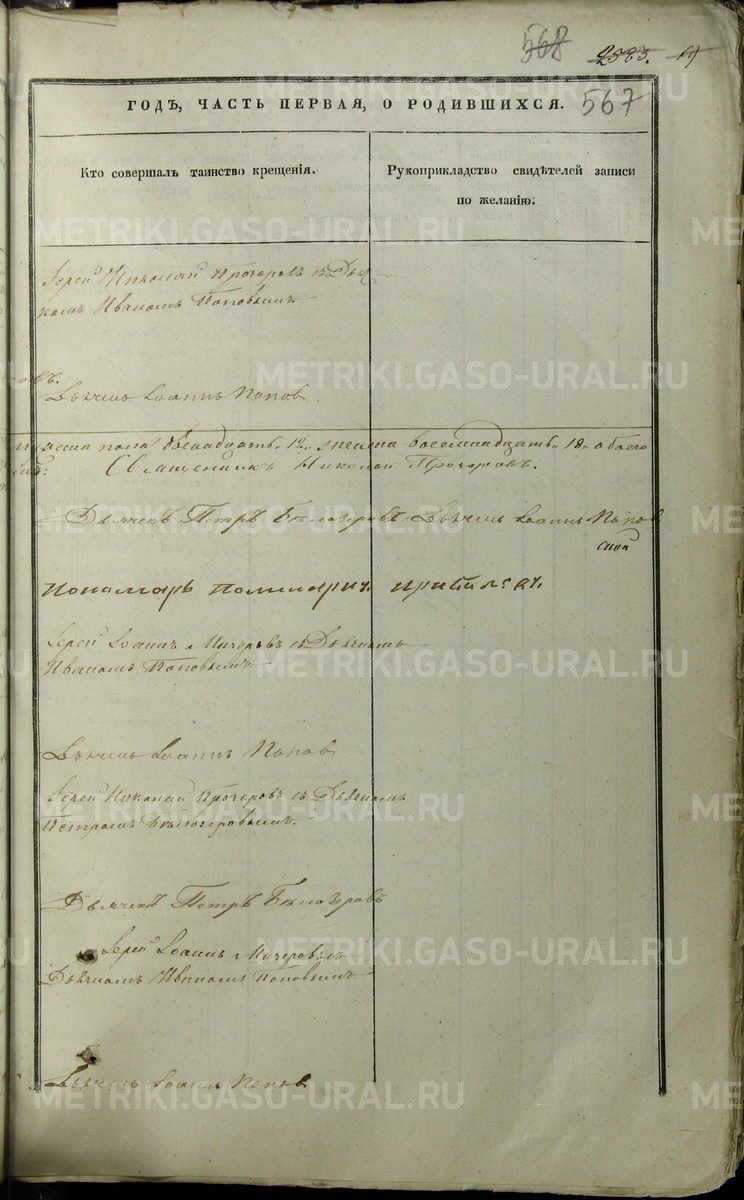 568 2583.
567
ГОДЪ, ЧАСТЬ ПЕРВАЯ, О РОДИВШИХСЯ.
Кто совершалъ таинство крещенія.
Рукоприкладство свидѣтелей записи
по желанію.
Іерей Николай Прозоровъ съ Дьяч
комъ Иваномъ Поповымъ
Дьячекъ Іоаннъ Попов
пола двенадцать 12. женска восемнадцать 18. обоего
Священникъ Николай Прозоровъ.
Дьячекъ Петръ Бѣлозеровъ Дьячекъ Іоаннъ Попов
Пономарь
Іерей Іоаннъ Мичеровъ съ Дьячкомъ
Иваномъ Поповымъ
Дьячекъ Іоаннъ Попов
Іерей Николай Прозоровъ съ Дьячкомъ
Петромъ Бѣлозеровымъ.
Дьячекъ Петръ Бѣлозеровъ
Іерей Іоаннъ Мичеровъ съ
Дьячкомъ Иваномъ Поповымъ
Дьячекъ Іоаннъ Попов
METRIKI.GASO-URAL.RU